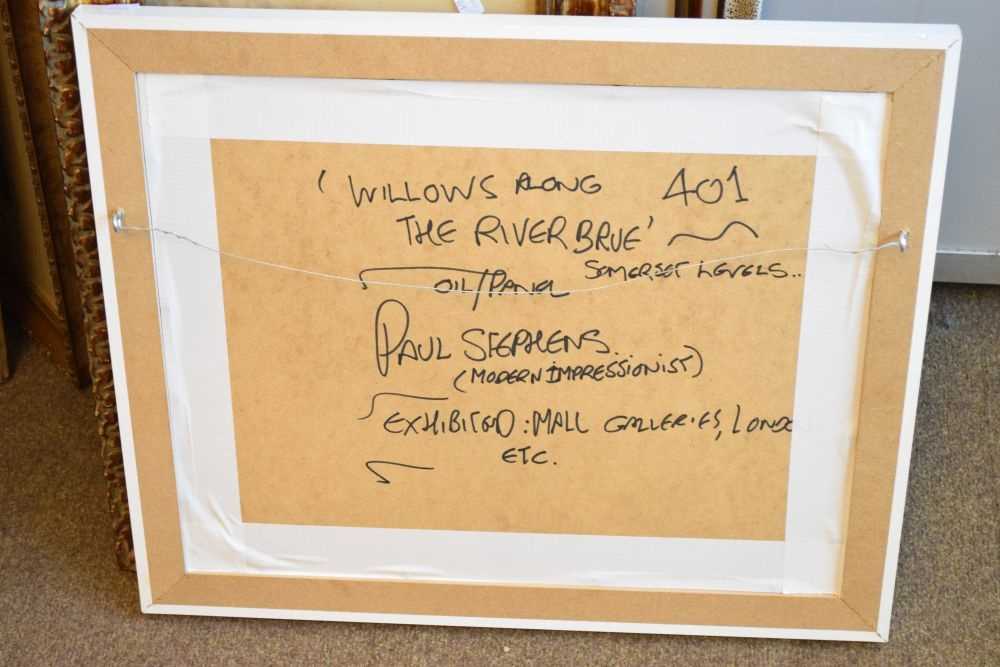 'WILLOWS ALONG 401
THE RIVER BRUE'
SOMERSET LEVELS..
OIL/PANEL
PAUL STEPHENS..
(MODERN IMPRESSIONIST)
EXHIBITED: MALL GALLERIES, LONDO
ETC.